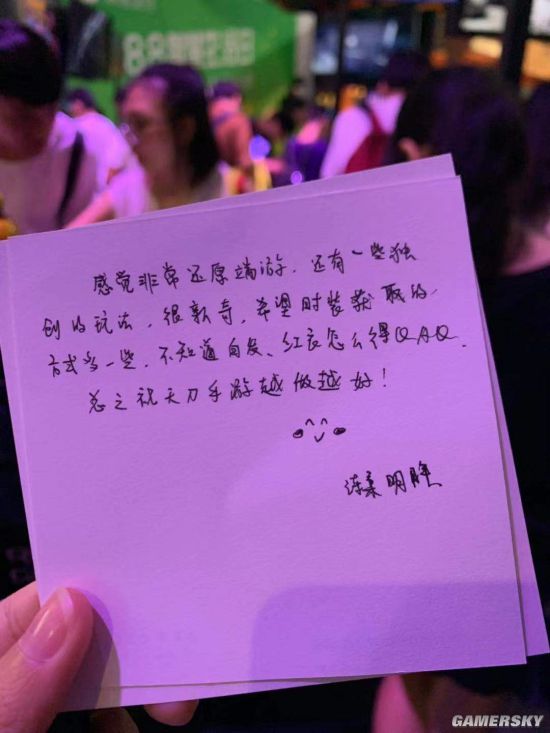 感觉非常还原端游，还有一些独
创的玩法，很新奇，希望时装获取的
方式多一些，不知道白发、红衣怎么得QAQ，
总之祝天刀手游越做越好！
GAMERSKY